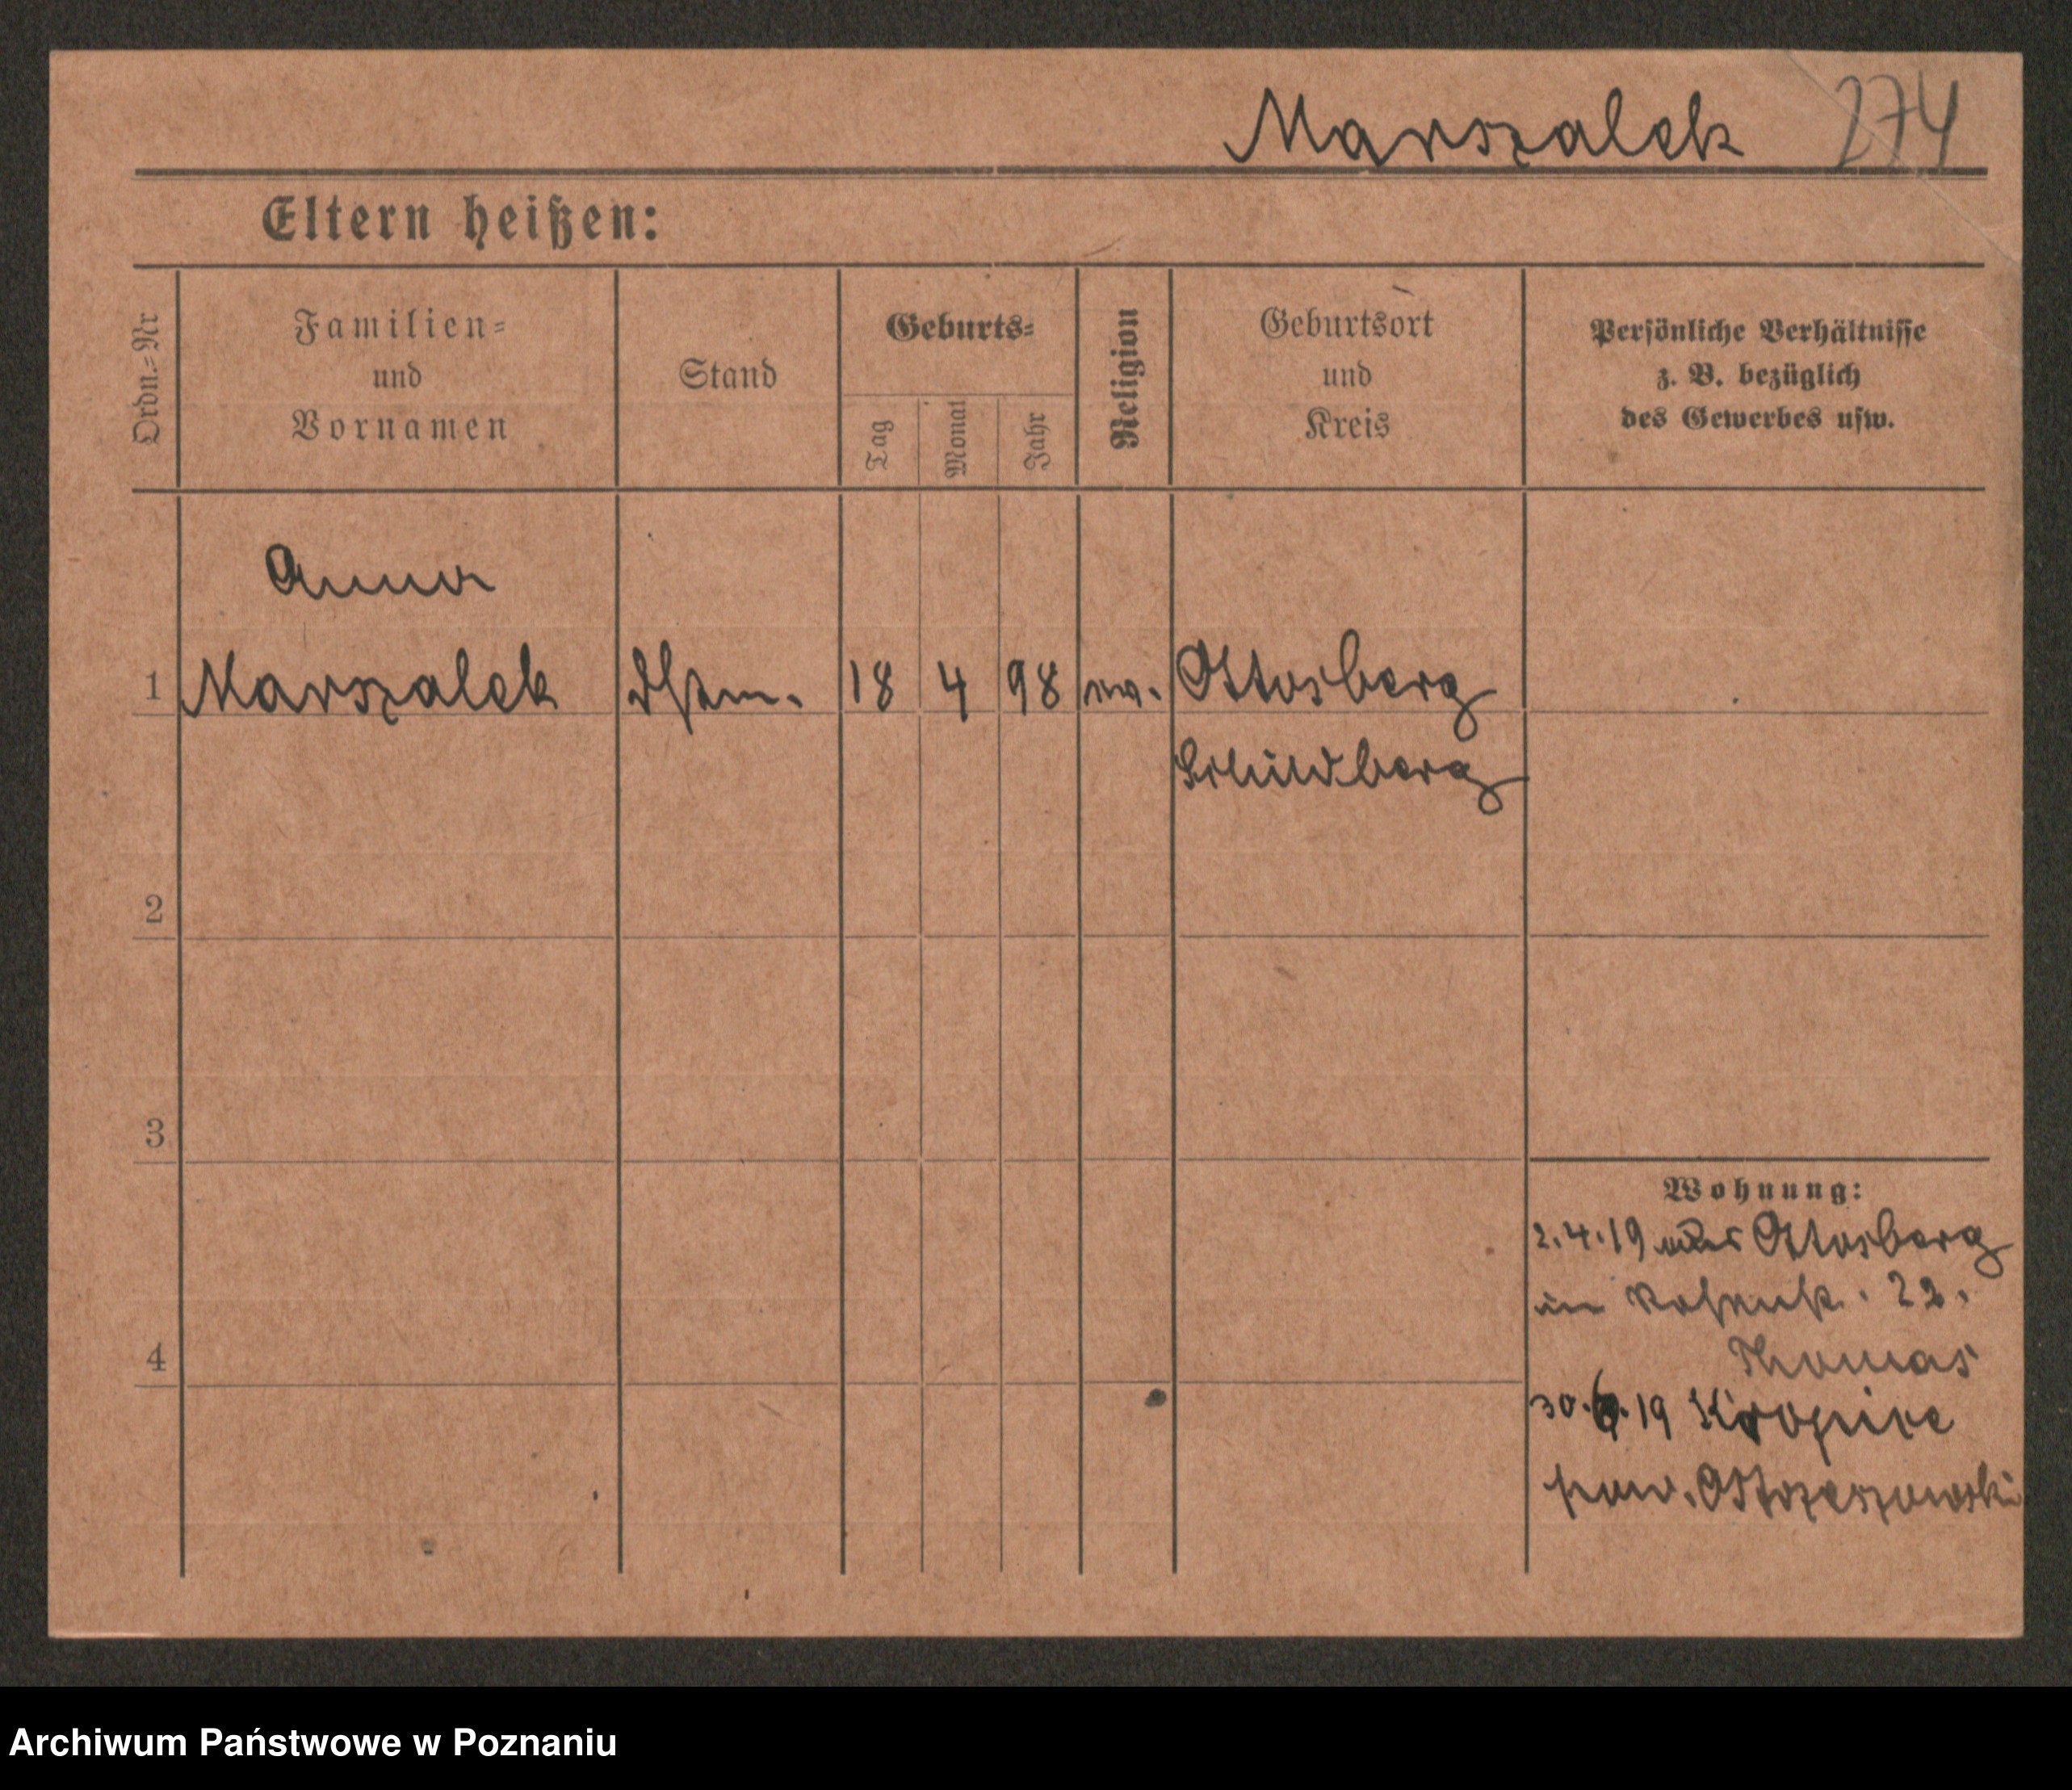 Marszalek 274
Eltern heißen:
Ordn.=Nr
Familien=
und
Vornamen
Stand
Geburts=
Tag
Monat
Jahr
Religion
Geburtsort
und
Kreis
Persönliche Verhältnisse
z. B. bezüglich
des Gewerbes usw.
Anna
1 Marszalek 18 4 98 Ottosberg
Schildberg
2
3
4
Wohnung:
2.4.19 aus Ottosberg
in 22.
Thomas
30.6.19
pow.
Archiwum Państwowe w Poznaniu